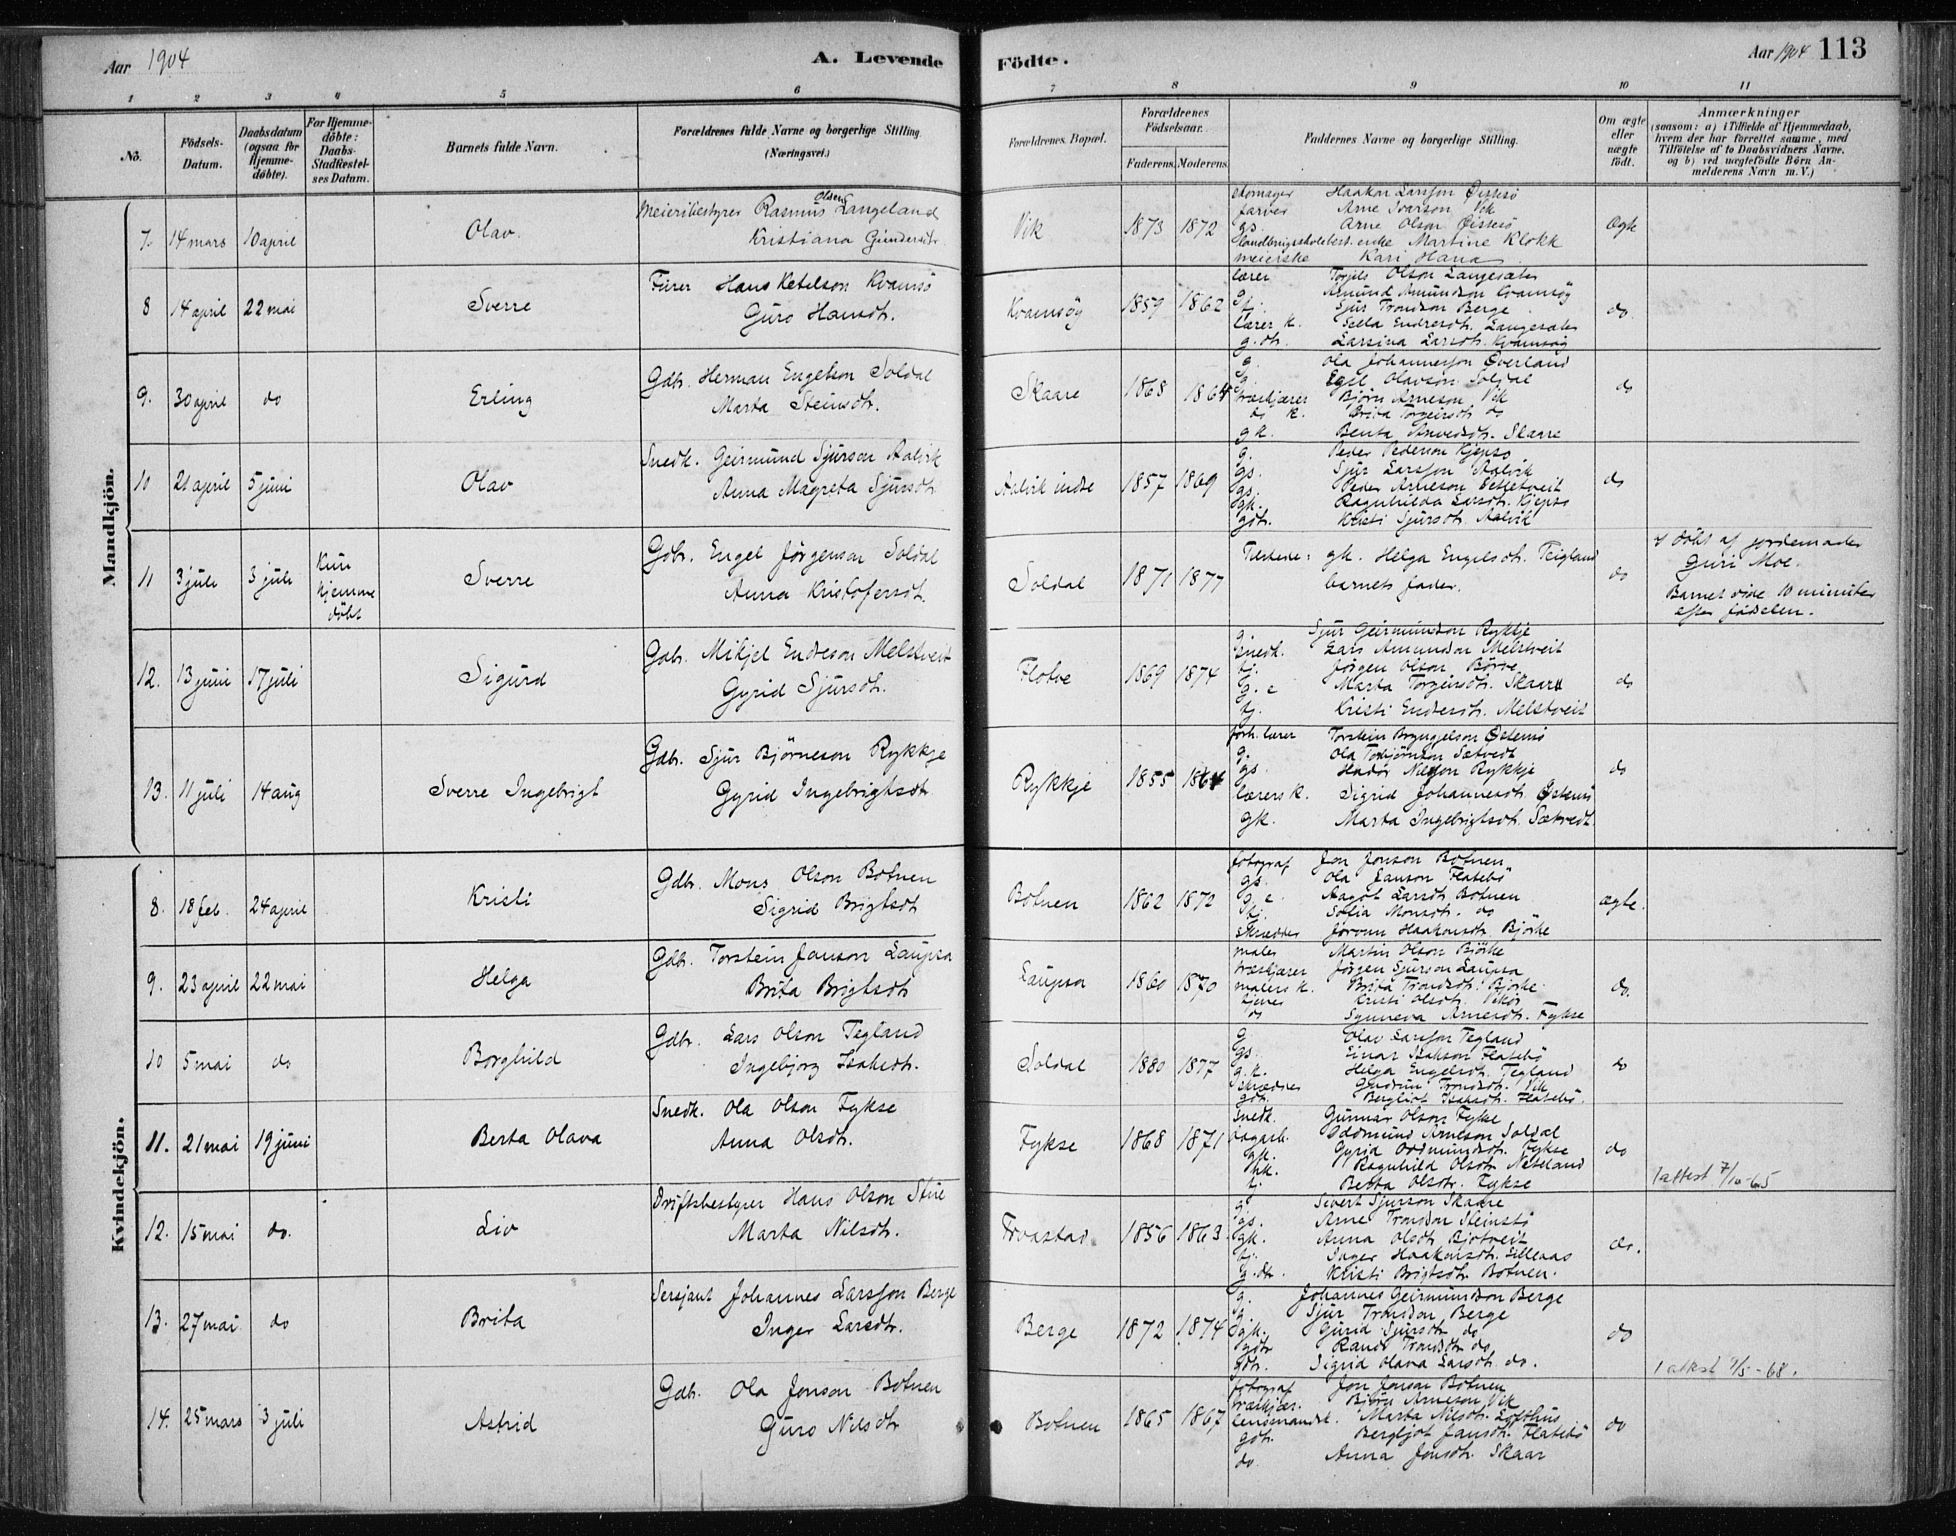 Aar 1904
A. Levende Födte.
Aar 1904 113
1 2 3 4 5 6 7 8 9 10 11
No.
Födsels-Datum.
Daabsdatum (ogsaa for Hjemme-döbte).
For Hjemme-döbte: Daabs-Stadfæstel-ses Datum.
Barnets fulde Navn.
Forældrenes fulde Navne og borgerlige Stilling. (Næringsvei.)
Forældrenes Bopæl.
Forældrenes Födselsaar.
Faderens. Moderens.
Faddernes Navne og borgerlige Stilling.
Om ægte eller uægte födt.
Anmærkninger
(saasom: a) i Tilfælde af Hjemmedaab,
hvem der har forrettet samme, med
Tilföielse af to Daabsvidners Navne,
og b) ved uægtefödte Börn An-
melderens Navn m. V.)
Mandkjön.
7. 14 mars 10 april Olav
Meieribestyrer Rasmus Olsen Langeland
Kristiana Gundersdtr.
Vik 1873 1872
Haakon Larsson Øistesö
farver Arne Ivarson Vik
gs. Arne Olson Øistesö
landbrugsskolebest. enke Martine Klokk
meierske Kari Hana
Ægte
8 14 april 22 mai Sverre
Fürer Hans Ketilson Kvamsö
Guro Hansdtr.
Kvamsöy 1859 1862
lærer Torgils Olson Langesæter
g. Amund Amundson Kvamsöy
tj. Sjur Trondson Berge
lærer k. Sella Endresdtr. Langesæter
g.dtr. Larsina Larsdtr. Kvamsöy
do
9. 30 april do Erling
Gdbr. Herman Engelson Soldal
Marta Steinsdtr.
Skaare 1868 1864
g. Ola Johannesson Överland
g. Egil Olavson Soldal
træskjærer Björn Arneson Vik
do k. Brita Torgeirsdtr. do
gk. Benta Arvedsdtr. Skaare
do
10 21 april 5 juni Olav
Snedk. Geirmund Sjurson Aalvik
Anna Magreta Sjursdtr
Aalvik indre 1857 1869
g. Peder Pederson Kjepsö
gs. Sjur Larsson Aalvik
gs. Peder Arneson
gk. Ragnhilda Larsdtr. Kjepsö
gdtr. Kristi Sjursdtr. Aalvik
do
11 3 juli 3 juli Kun hjemme döbt Sverre
Gdbr. Engel Jörgenson Soldal
Anna Kristofersdtr.
Soldal 1871 1877
Tilstede: gk. Helga Engelsdtr. Teigland
barnets fader.
do
döbt af jordemoder
Guri Moe.
Barnet döde 10 minuter
efter födselen.
12. 13 juni 17 juli Sigurd
Gdbr. Mikjel Endreson Melstveit
Gyrid Sjursdtr.
Flotve 1869 1874
g. Sjur Geirmundson Rykkje
snedk. Lars Amundson Melstveit
tj. Jörgen Olson Börve
g. e Marta Torgeirsdtr. Skaare
tj. Kristi Endresdtr. Melstveit
do
13. 11 juli 14 aug Sverre Ingebrigt
Gdbr. Sjur Björneson Rykkje
Gyrid Ingebrigtsdtr
Rykkje 1855 1864
forh. lærer Torstein Bryngelson Östensö
g. Ola Torbjörnson Sætvedt
gs. Hador Nilsson Rykkje
lærers k. Sigrid Johannesdtr Östensö
gk. Marta Ingebrigtsdtr. Sætvedt
do
Kvindekjön.
8. 18 feb. 24 april Kristi
Gdbr. Mons Olson Botnen
Sigrid Brigtsdtr
Botnen 1862 1872
fotograf Jon Jonson Botnen
gs. Ola Janson Flatebö
g. e. Aagot Larsdtr. Botnen
tj. Sofia Monsdtr. do
skrædder Jörunn Haakonsdtr Björke
ægte.
9. 23 april 22 mai Helga
Gdbr. Torstein Janson Laupsa
Brita Brigtsdtr
Laupsa 1860 1870
maler Martin Olson Björke
træskjærer Jörgen Sjurson Laupsa
malers k. Brita Trondsdtr. Björke
tjener Kristi Olsdtr. Vikör
do Synneva Arnesdtr. Fykse
do.
10 5 mai do Borghild
Gdbr. Lars Olson Tegland
Ingebjorg Isaksdtr.
Soldal 1880 1877
g Olav Larsson Tegland
gs. Einar Isakson Flatebö
g.k. Helga Engelsdtr. Tegland
Gudrun Trondsdtr. Vik
gdtr. Bergliot Isaksdtr. Flatebö.
do
11. 21 mai 19 juni Berta Olava
Snedk. Ola Olson Fykse
Anna Olsdtr.
Fykse 1868 1871
snedk. Gunnar Olson Fykse
Oddmund Arneson Soldal
gk. Gyrid Oddmundsdtr. Fykse
hk. Ragnhild Olsdtr Neteland
tj. Berta Olsdtr. Fykse
do
1 attest 7/10-65
12. 15 mai do. Liv
Driftsbestyrer Hans Olson Stue
Marta Nilsdtr.
Froastad 1856 1863
g Sivert Sjurson Skaare
gs. Arne Trondson Steinstö
gk. Anna Olsdtr Bjotveit
tj. Inger Haakonsdtr. Lilleaas
g.dtr. Kristi Brigtsdtr. Botnen.
do.
13. 27 mai do Brita
Sersjant Johannes Larsson Berge
Inger Larsdtr.
Berge 1872 1874
g. Johannes Geirmundson Berge
g. Sjur Trondson Berge
gk. Gurid Sjursdtr do
gdtr Randi Trondsdtr do
gdtr. Sigrid Olava Larsdtr do.
do
1 attest 7/5-68.
14. 25 mars 3 juli Astrid
Gdb. Ola Jonson Botnen
Guro Nilsdtr
Botnen 1865 1867
fotograf Jon Jonson Botnen
træskjær. Björn Arneson Vik
lensmandsk. Marta Nilsdtr. Lofthus
gdtr. Bergljot Jansdtr. Flatebö
do. Anna Jonsdtr. Skaar
do